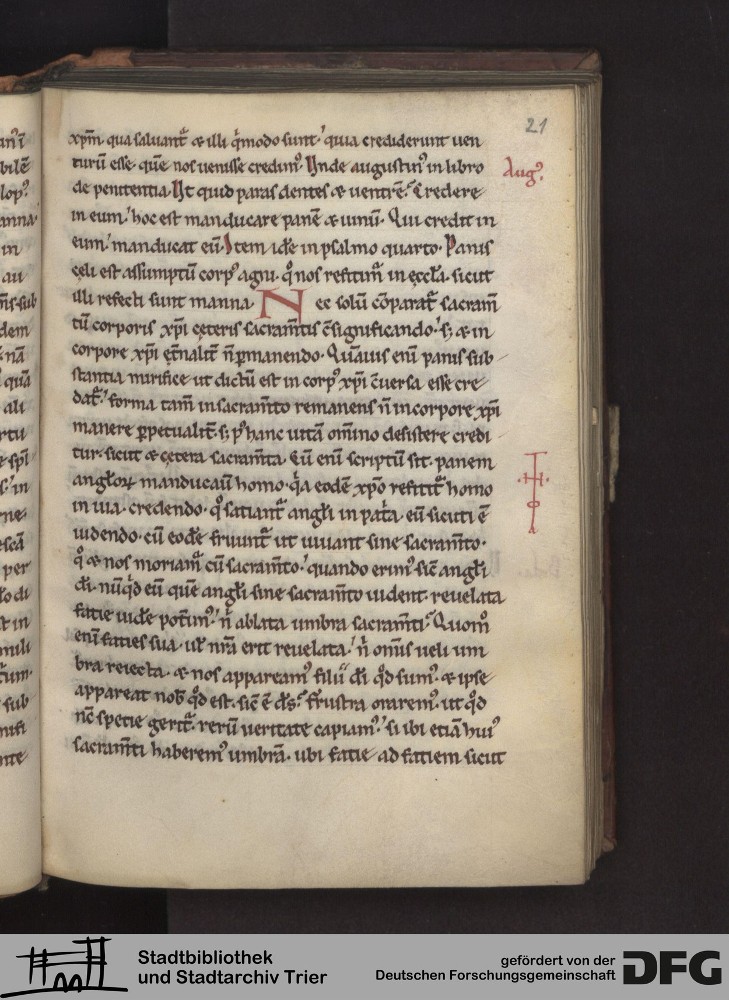 21
xp̄m. qua saluant᷑ ⁊ illi q̄modo sunt. quia crediderunt uen
turū esse. quē nos uenisse credim᷒. Unde augustin᷒ in libro
Aug᷒.
de penitentia. Ut quid paras dentes ⁊ uentrē. Credere
in eum. hoc est manducare panē ⁊ uinū. Qui credit in
eum. manducat eū. Item idē in psalmo quarto. Panis
cęli est assumptū corp᷒ agni. q̊ nos refitim᷒ in ęccła. sicut
illi refecti sunt manna. Nec solū cōparat᷑ sacram̄
tū corporis xp̄i cęteris sacram̄tis ē significando. s; ⁊ in
corpore xp̄i et̄nalit̄ n̄ ꝑmanendo. Quāuis enī panis sub
stantia mirifice ut dictū est in corp᷒ xp̄i c̄uersa esse cre
dat᷑. forma tam̄ in sacram̄to remanens n̄ in corpore xp̄i
manere ꝑpetualit̄. s; p᷒ hanc uitā om̄ino desistere credi
tur. sicut ⁊ cetera sacram̄ta. Cū enī scriptū sit. panem
angłoꝝ manducauit homo. q̄a eodē xp̄o refitit᷑ homo
in uia. credendo. q̊ satiant᷑ angłi in pat̄a. eū sicuti ē
uidendo. cū eodē fruunt᷑ ut uiuant sine sacram̄to.
q̊ ⁊ nos moriam᷑ cū sacram̄to. quando erim᷒ sic̄ angłi
di. nūq̄d eū quē angłi sine sacram̄to uident. reuelata
facie uidē potim᷒. n̄ ablata umbra sacram̄ti. Quom̊
enī facies sua. uł nr̄a erit reuelata. n̄ om̄is ueli um
bra reiecta. ⁊ nos appaream᷒ filii di q̄d sum᷒. ⁊ ipse
appareat nob̄ q̄d est. sic̄ ē dс̄. Frustra orarem᷒. ut q̄d
nc̄ specie gerit᷑. rerū ueritate capiam᷒. si ibi etiā hui᷒
sacram̄ti haberem᷒ umbrā. ubi facie ad faciem sicut
Stadtbibliothek
und Stadtarchiv Trier
gefördert von der
Deutschen Forschungsgemeinschaft
DFG